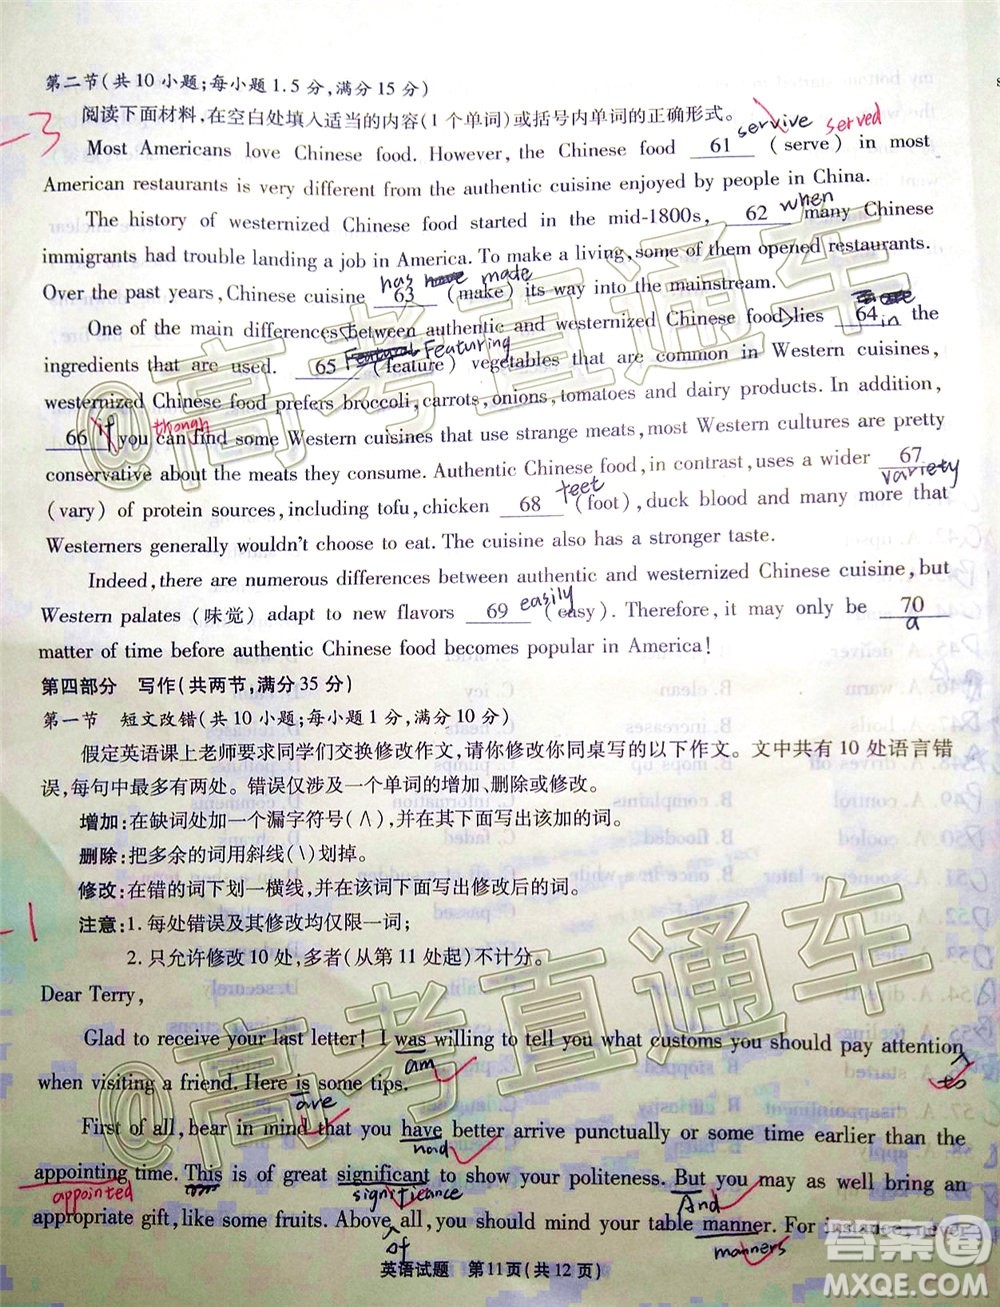 第二节(共10小题;每小题1.5分,满分15分)
-3
阅读下面材料,在空白处填入适当的内容(1个单词)或括号内单词的正确形式。
servive served
Most Americans love Chinese food. However, the Chinese food 61 (serve) in most
American restaurants is very different from the authentic cuisine enjoyed by people in China.
when
The history of westernized Chinese food started in the mid-1800s, 62 many Chinese
immigrants had trouble landing a job in America. To make a living, some of them opened restaurants.
has made
Over the past years, Chinese cuisine 63 (make) its way into the mainstream.
One of the main differences between authentic and westernized Chinese food lies 64 in the
Featuring
ingredients that are used. 65 (feature) vegetables that are common in Western cuisines,
westernized Chinese food prefers broccoli, carrots, onions, tomatoes and dairy products. In addition,
66 if though you can find some Western cuisines that use strange meats, most Western cultures are pretty
conservative about the meats they consume. Authentic Chinese food, in contrast, uses a wider 67
feet variety
(vary) of protein sources, including tofu, chicken 68 (foot), duck blood and many more that
Westerners generally wouldn't choose to eat. The cuisine also has a stronger taste.
Indeed, there are numerous differences between authentic and westernized Chinese cuisine, but
easily
Western palates (味觉) adapt to new flavors 69 (easy). Therefore, it may only be 70
a
matter of time before authentic Chinese food becomes popular in America!
第四部分 写作(共两节,满分35分)
第一节 短文改错(共10小题;每小题1分,满分10分)
假定英语课上老师要求同学们交换修改作文,请你修改你同桌写的以下作文。文中共有10处语言错
误,每句中最多有两处。错误仅涉及一个单词的增加、删除或修改。
增加:在缺词处加一个漏字符号(∧),并在其下面写出该加的词。
删除:把多余的词用斜线(\)划掉。
修改:在错的词下划一横线,并在该词下面写出修改后的词。
-1
注意:1. 每处错误及其修改均仅限一词;
2. 只允许修改10处,多者(从第11处起)不计分。
Dear Terry,
Glad to receive your last letter! I was willing to tell you what customs you should pay attention
am to
when visiting a friend. Here is some tips.
are
First of all, bear in mind that you have better arrive punctually or some time earlier than the
had
appointing time. This is of great significant to show your politeness. But you may as well bring an
appointed significance And
appropriate gift, like some fruits. Above all, you should mind your table manner. For instance, never
of manners
英语试题 第11页(共12页)
@高考直通车
@高考直通车
答案圈
MXQE.COM